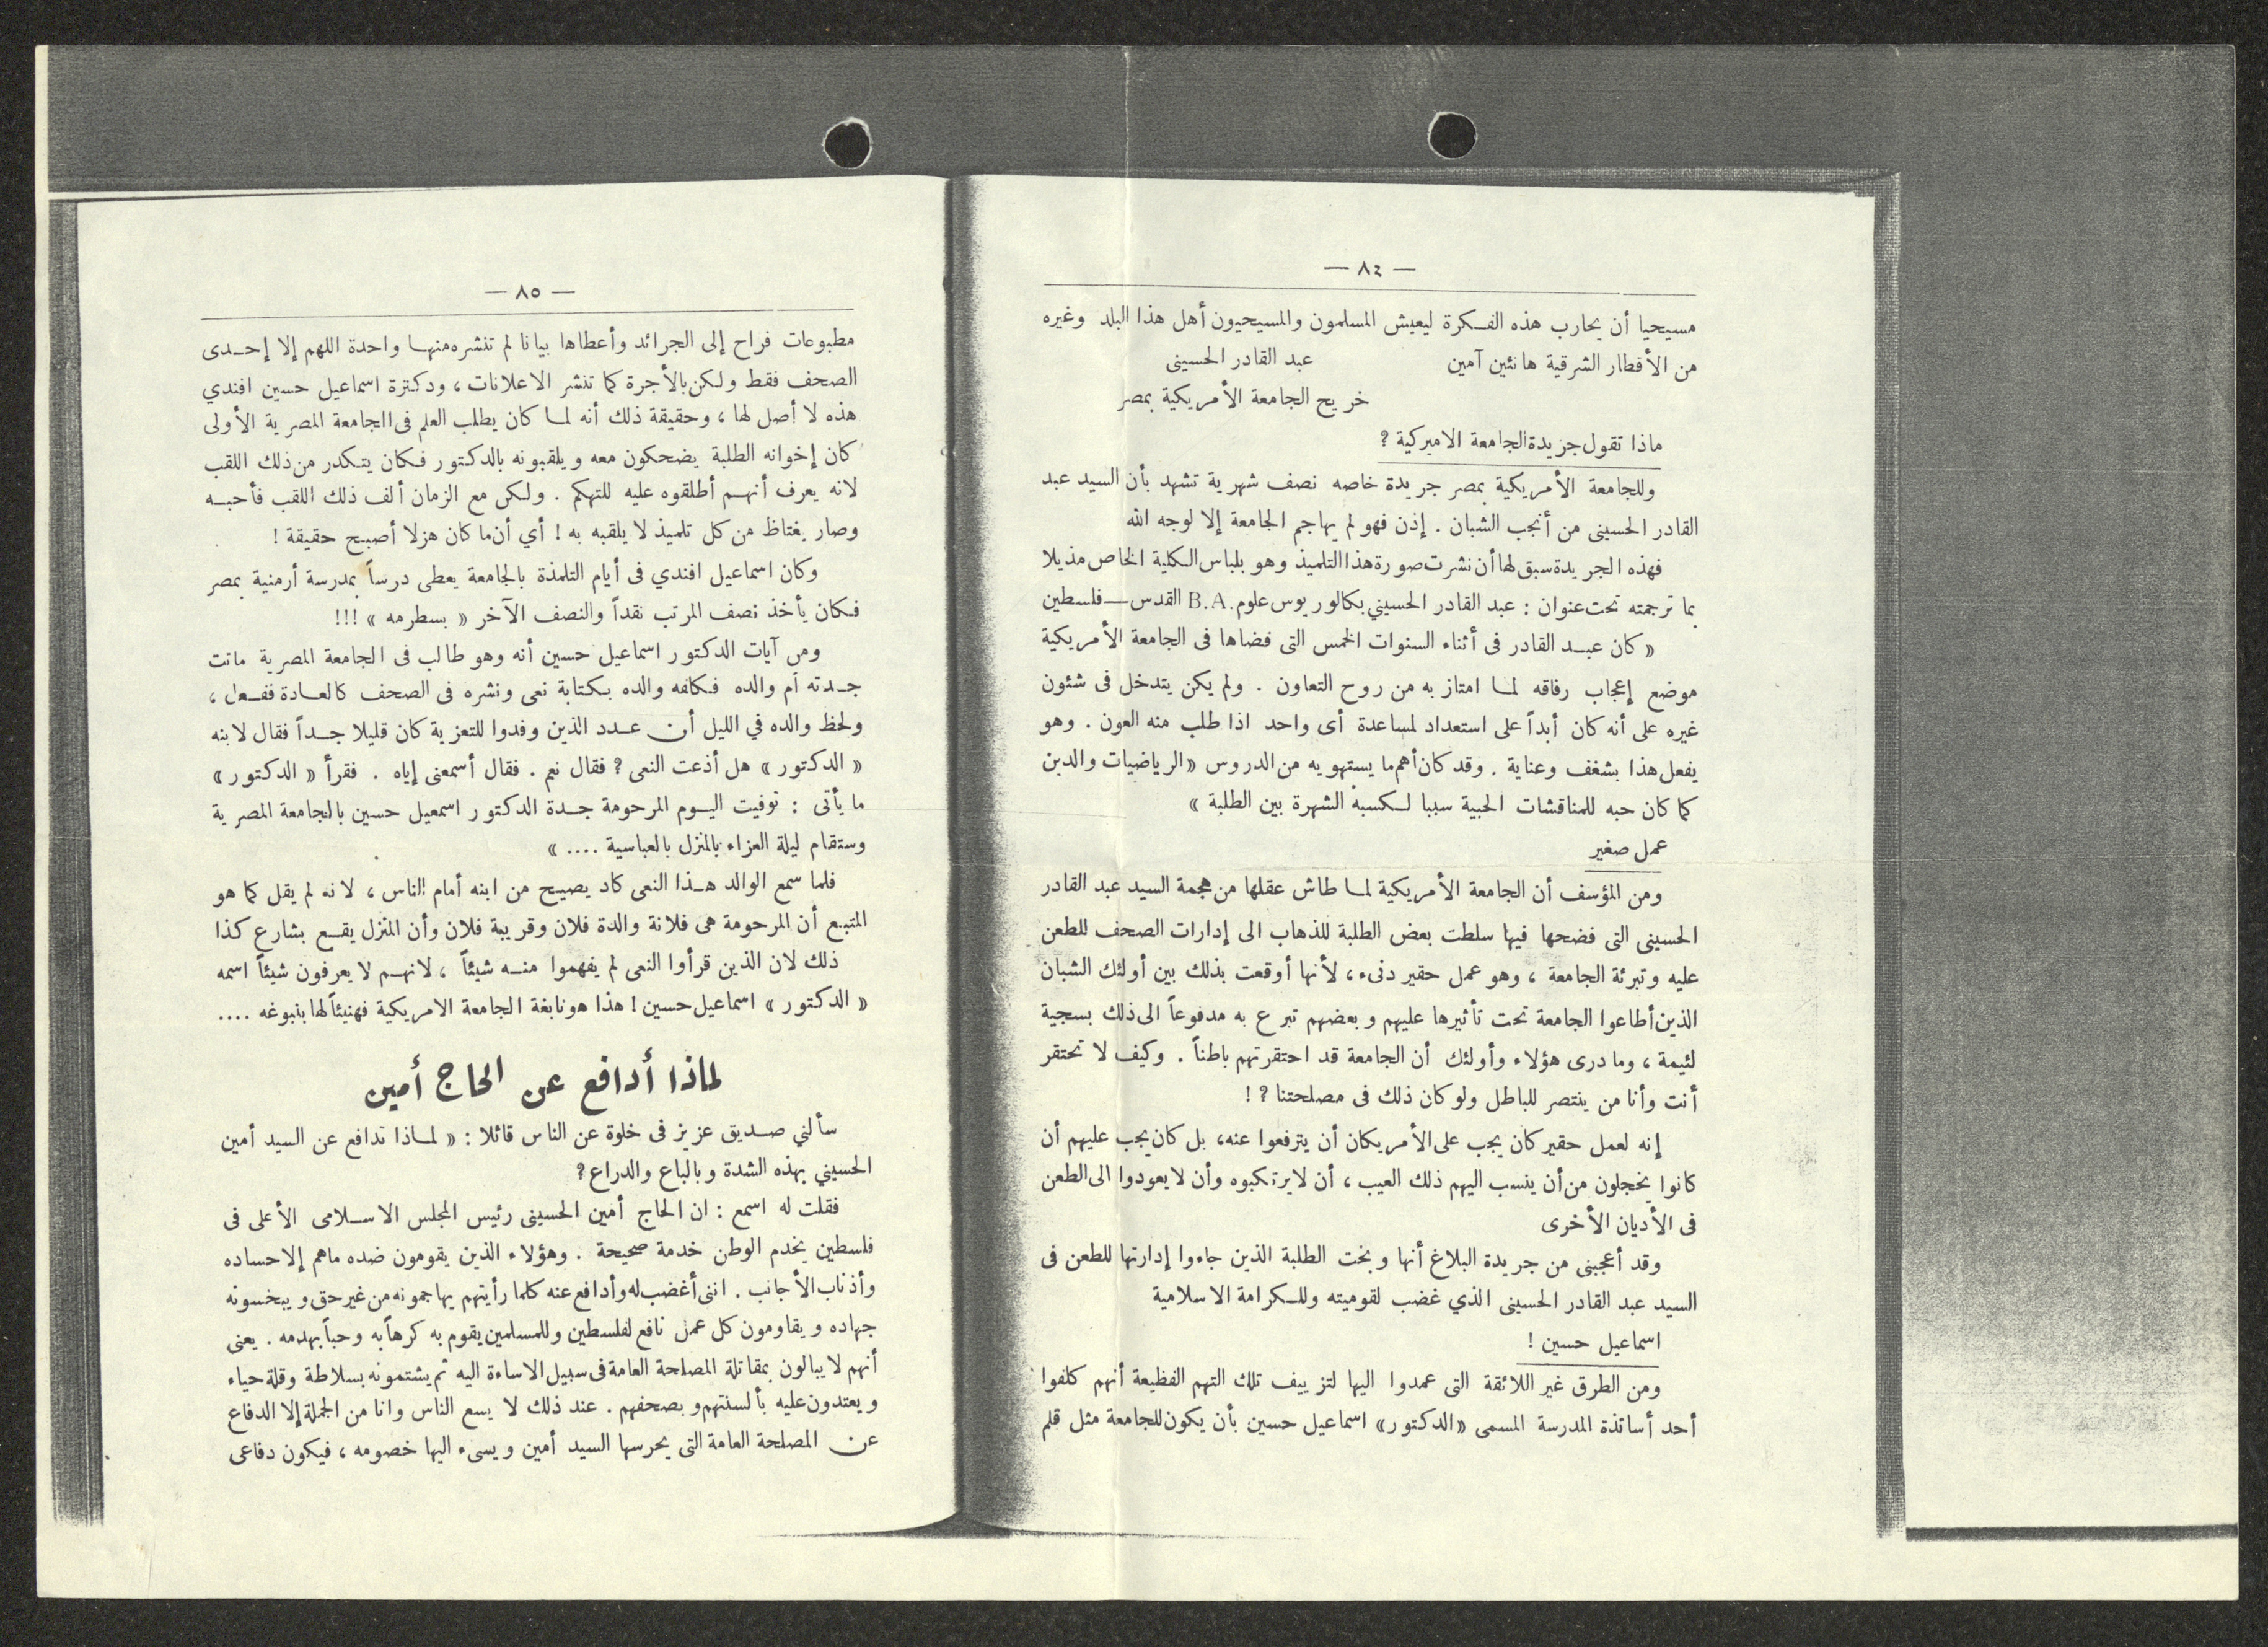 — ٨٤ —
مسيحيا أن يحارب هذه الفكرة ليعيش المسلمون والمسيحيون أهل هذا البلد وغيره
من الأقطار الشرقية هانئين آمين عبد القادر الحسينى
خريج الجامعة الأمريكية بمصر
ماذا تقول جريدة الجامعة الاميركية ؟
وللجامعة الأمريكية بمصر جريدة خاصه نصف شهرية تشهد بأن السيد عبد
القادر الحسينى من أنجب الشبان . إذن فهو لم يهاجم الجامعة إلا لوجه الله
فهذه الجريدة سبق لها أن نشرت صورة هذا التلميذ وهو بلباس الكلية الخاص مذيلا
بما ترجمته تحت عنوان : عبد القادر الحسيني بكالوريوس علوم .B.A القدس — فلسطين
« كان عبد القادر فى أثناء السنوات الخمس التى قضاها فى الجامعة الأمريكية
موضع إعجاب رفاقه لما امتاز به من روح التعاون . ولم يكن يتدخل فى شئون
غيره على أنه كان أبداً على استعداد لمساعدة أى واحد اذا طلب منه العون . وهو
يفعل هذا بشغف وعناية . وقد كان أهم ما يستهويه من الدروس «الرياضيات والدين
كما كان حبه للمناقشات الحبية سببا لكسبه الشهرة بين الطلبة »
عمل صغير
ومن المؤسف أن الجامعة الأمريكية لما طاش عقلها من هجمة السيد عبد القادر
الحسينى التى فضحها فيها سلطت بعض الطلبة للذهاب الى إدارات الصحف للطعن
عليه وتبرئة الجامعة ، وهو عمل حقير دنىء ، لأنها أوقعت بذلك بين أولئك الشبان
الذين أطاعوا الجامعة تحت تأثيرها عليهم وبعضهم تبرع به مدفوعاً الى ذلك بسجية
لئيمة ، وما درى هؤلاء وأولئك أن الجامعة قد احتقرتهم باطناً . وكيف لا تحتقر
أنت وأنا من ينتصر للباطل ولو كان ذلك فى مصلحتنا ؟ !
إنه لعمل حقير كان يجب على الأمريكان أن يترفعوا عنه، بل كان يجب عليهم أن
كانوا يخجلون من أن ينسب اليهم ذلك العيب ، أن لا يرتكبوه وأن لا يعودوا الى الطعن
فى الأديان الأخرى
وقد أعجبنى من جريدة البلاغ أنها وبخت الطلبة الذين جاءوا إدارتها للطعن فى
السيد عبد القادر الحسينى الذي غضب لقوميته وللكرامة الاسلامية
اسماعيل حسين !
ومن الطرق غير اللائقة التى عمدوا اليها لتزييف تلك التهم الفظيعة أنهم كلفوا
أحد أساتذة المدرسة المسمى «الدكتور» اسماعيل حسين بأن يكون للجامعة مثل قلم
— ٨٥ —
مطبوعات فراح إلى الجرائد وأعطاها بيانا لم تنشره منها واحدة اللهم إلا إحدى
الصحف فقط ولكن بالأجرة كما تنشر الاعلانات ، ودكترة اسماعيل حسين افندي
هذه لا أصل لها ، وحقيقة ذلك أنه لما كان يطلب العلم فى الجامعة المصرية الأولى
كان إخوانه الطلبة يضحكون معه ويلقبونه بالدكتور فكان يتكدر من ذلك اللقب
لانه يعرف أنهم أطلقوه عليه للتهكم . ولكن مع الزمان ألف ذلك اللقب فأحبه
وصار يغتاظ من كل تلميذ لا يلقبه به ! أي أن ما كان هزلا أصبح حقيقة !
وكان اسماعيل افندي فى أيام التلمذة بالجامعة يعطى درساً بمدرسة أرمنية بمصر
فكان يأخذ نصف المرتب نقداً والنصف الآخر « بسطرمه » !!!
ومن آيات الدكتور اسماعيل حسين أنه وهو طالب فى الجامعة المصرية ماتت
جدته أم والده فكلفه والده بكتابة نعى ونشره فى الصحف كالعادة ففعل ،
ولحظ والده في الليل أن عدد الذين وفدوا للتعزية كان قليلا جداً فقال لابنه
« الدكتور » هل أذعت النعى ؟ فقال نعم . فقال أسمعنى إياه . فقرأ « الدكتور »
ما يأتى : توفيت اليوم المرحومة جدة الدكتور اسمعيل حسين بالجامعة المصرية
وستقام ليلة العزاء بالمنزل بالعباسية .... »
فلما سمع الوالد هذا النعى كاد يصيح من ابنه أمام الناس ، لانه لم يقل كما هو
المتبع أن المرحومة هى فلانة والدة فلان وقريبة فلان وأن المنزل يقع بشارع كذا
ذلك لان الذين قرأوا النعى لم يفهموا منه شيئاً ، لانهم لا يعرفون شيئاً اسمه
« الدكتور » اسماعيل حسين ! هذا هو نابغة الجامعة الامريكية فهنيئاً لها بنبوغه ....
لماذا أدافع عن الحاج أمين
سألني صديق عزيز فى خلوة عن الناس قائلا : « لماذا تدافع عن السيد أمين
الحسيني بهذه الشدة وبالباع والدراع ؟
فقلت له اسمع : ان الحاج أمين الحسينى رئيس المجلس الاسلامى الأعلى فى
فلسطين يخدم الوطن خدمة صحيحة . وهؤلاء الذين يقومون ضده ماهم إلا حساده
وأذناب الأجانب . اننى أغضب له وأدافع عنه كلما رأيتهم يهاجمونه من غير حق ويبخسونه
جهاده ويقاومون كل عمل نافع لفلسطين وللمسلمين يقوم به كرهاً به وحباً بهدمه . يعنى
أنهم لا يبالون بمقاتلة المصلحة العامة فى سبيل الاساءة اليه ثم يشتمونه بسلاطة وقلة حياء
ويعتدون عليه بألسنتهم وبصحفهم . عند ذلك لا يسع الناس وانا من الجملة إلا الدفاع
عن المصلحة العامة التى يحرسها السيد أمين ويسىء اليها خصومه ، فيكون دفاعى